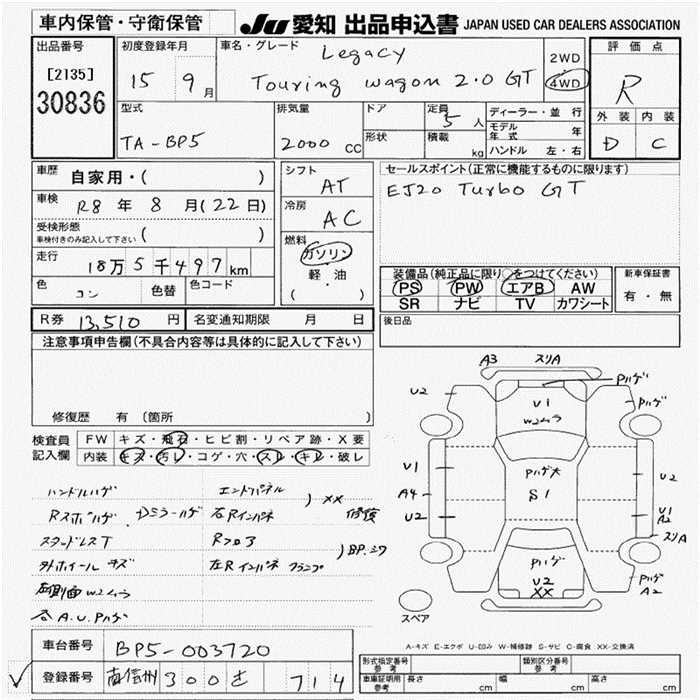 車内保管・守衛保管
JU 愛知 出品申込書 JAPAN USED CAR DEALERS ASSOCIATION
出品番号
[2135]
30836
初度登録年月
15 9月
車名・グレード
Legacy
Touring wagon 2.0 GT
2WD
4WD
評価点
R
外装 内装
D C
型式
TA-BP5
排気量
2000 CC
ドア
形状
定員 5 人
積載 kg
ディーラー・並行
モデル年式 年
ハンドル 左・右
車歴
自家用・( )
車検
R8 年 8 月(22日)
受検形態
車検付きのみ記入して下さい ( )
走行
18万5千497km
色 コン 色替 色コード
シフト
AT
冷房
AC
燃料
ガソリン
軽・油
( ・ )
セールスポイント(正常に機能するものに限ります)
EJ20 Turbo GT
装備品(純正品に限り○をつけてください)
PS PW エアB AW
SR ナビ TV カワシート
新車保証書
有・無
後日品
R券 13,510 円 名変通知期限 月 日
注意事項申告欄(不具合内容等は具体的に記入して下さい)
修復歴 有 〔箇所 〕
検査員記入欄
FW キズ・飛石・ヒビ割・リペア跡・X要
内装 キズ・汚レ・コゲ・穴・スレ・キレ・破レ
ハンドルハゲ エンドパネル
Rスポハゲ・Dミラーハゲ 右Rインパネ ) XX 修復
スタッドレスT Rフロア
外ホイールキズ 左Rインパネ フランプ ) BP.シワ
左側面W2ムラ
各A.U.Pハゲ
A3 スリA
Pハゲ
U2
U1
W2ムラ
Pハゲ
U1
Pハゲ大
S1
U2
A4
U2
U1
A2
スリA
Pハゲ
U2
XX
Pハゲ
A2
スペア
A-キズ E-エクボ U-凹み W-補修跡 S-サビ C-腐食 XX-交換済
車台番号 BP5-003720
登録番号 南信州 300 さ 714
形式指定番号 参考 類別区分番号 参考
車庫証明用 参考 長さ cm 幅 cm 高さ cm